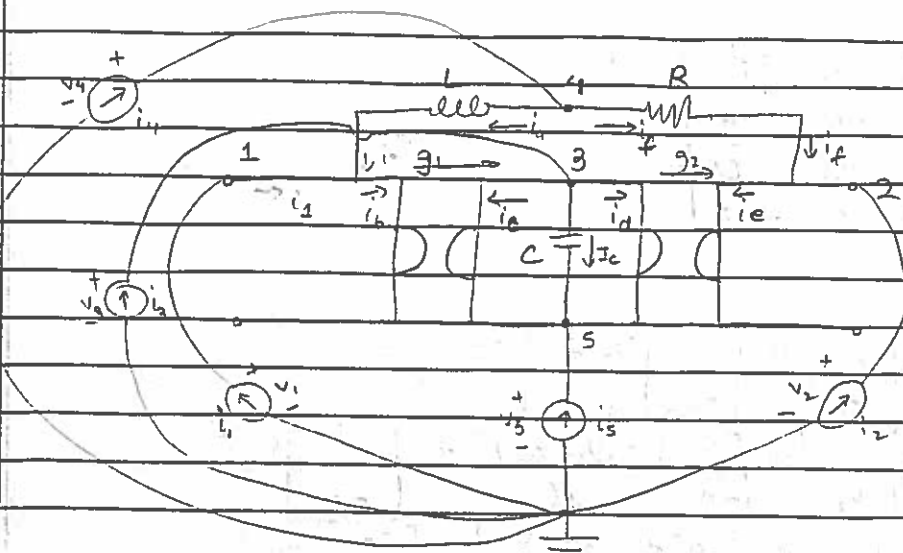 +
v4
-
i4
L 4 R
i4 if
if
1 g1 3 g2 2
i1 ib ic id ie
C Ic
+
v3 i3
-
5
v1
-
i1
+
v5 i5
-
+
v2
-
i2